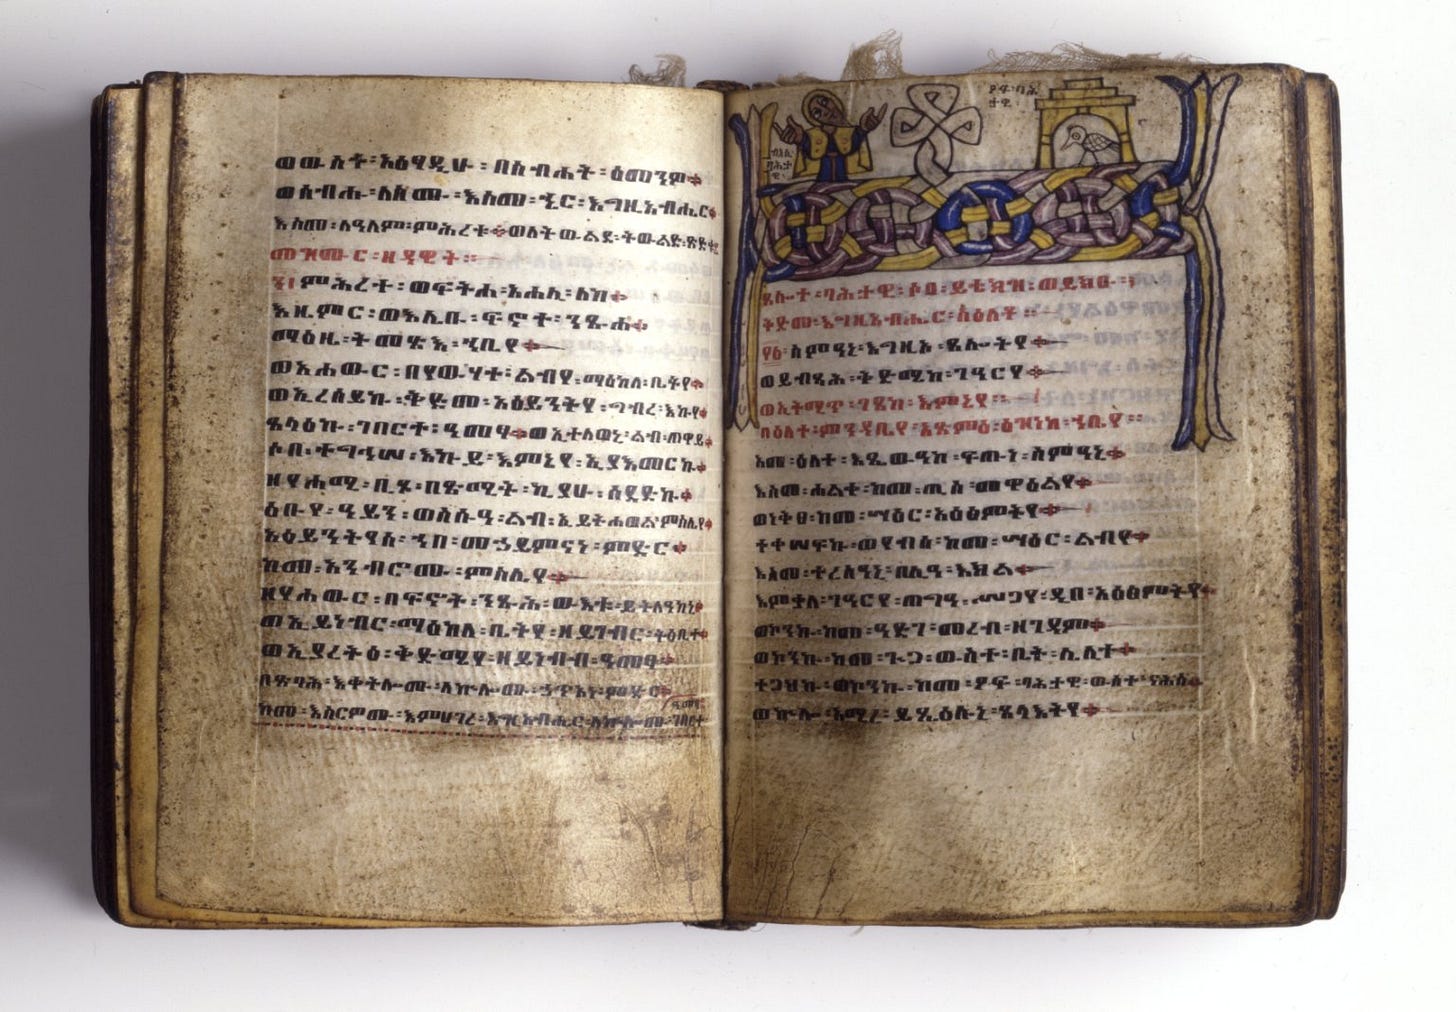 ወውስተ፡አዕፃዲሁ፡በስብሐት፡ዕመንዎ።
ወሰብሑ፡ለስሙ፡እስመ፡ኄር፡እግዚአብሔር።
እስመ፡ለዓለም፡ምሕረቱ።ወለትውልደ፡ትውልድ፡ጽድቁ።
መዝሙር፡ዘዳዊት።
፻ ምሕረተ፡ወፍትሐ፡አሐሊ፡ለከ።
እዜምር፡ወእሌቡ፡ፍኖተ፡ንጹሐ።
ማዕዜ፡ትመጽእ፡ኀቤየ።
ወአሐውር፡በየውሃተ፡ልብየ፡ማዕከለ፡ቤትየ።
ወኢረሰይኩ፡ቅድመ፡አዕይንትየ፡ግብረ፡እኩየ።
ጸላዕኩ፡ገበርተ፡ዓመፃ።ወኢተለወኒ፡ልብ፡ጠዋይ።
ሶበ፡ተግኅሠ፡እኩይ፡እምኔየ፡ኢያአመርኩ።
ዘየሐሚ፡ቢጾ፡በጽሚት፡ኪያሁ፡ሰደድኩ።
ዕቡየ፡ዓይን፡ወስሱዓ፡ልብ፡ኢይትሐወል፡ምስሌየ።
አዕይንትየሰ፡ኀበ፡መኃይምናነ፡ምድር።
ከመ፡አንብሮሙ፡ምስሌየ።
ዘየሐውር፡በፍኖት፡ንጹሕ፡ውእቱ፡ይትለዓከኒ።
ወኢይነብር፡ማዕከለ፡ቤትየ፡ዘይገብር፡ትዕቢተ።
ወኢያረትዕ፡ቅድሜየ፡ዘይነብብ፡ዓመፃ።
በጽባሕ፡እቀትሎሙ፡ለኵሎሙ፡ኃጥኣነ፡ምድር።
ከመ፡እሠርዎሙ፡እምሀገረ፡እግዚአብሔር፡ለኵሎሙ፡ገበርተ
ዓመፃ
ብእሲ፡
ባሕታዊ፡
ዖፍ፡ባሕ
ታዊ፡
ጸሎተ፡ባሕታዊ፡ሶበ፡ይቴክዝ፡ወይክዑ፡
ቅድመ፡እግዚአብሔር፡ስዕለቶ።
፻፩፡ስምዓኒ፡እግዚኦ፡ጸሎትየ።
ወይብጻሕ፡ቅድሜከ፡ገዓርየ።
ወኢትሚጥ፡ገጸከ፡እምኔየ።
በዕለተ፡ምንዳቤየ፡አጽምዕ፡ዕዝነከ፡ኀቤየ።
አመ፡ዕለተ፡እጼውዓከ፡ፍጡነ፡ስምዓኒ።
እስመ፡ሐልቀ፡ከመ፡ጢስ፡መዋዕልየ።
ወነቅፀ፡ከመ፡ሣዕር፡አዕፅምትየ።
ተቀሠፍኩ፡ወየብሰ፡ከመ፡ሣዕር፡ልብየ።
እስመ፡ተረስዓኒ፡በሊዓ፡እክል።
እምቃለ፡ገዓርየ፡ጠግዓ፡ሥጋየ፡ዲበ፡አዕፅምትየ።
ወኮንኩ፡ከመ፡ዓድገ፡መረብ፡ዘገዳም።
ወኮንኩ፡ከመ፡ጉጋ፡ውስተ፡ቤት፡ሌሊተ።
ተጋህኩ፡ወኮንኩ፡ከመ፡ዖፍ፡ባሕታዊ፡ውስተ፡ናሕስ።
ወኵሎ፡አሚረ፡ይጼዕሉኒ፡ጸላእትየ።